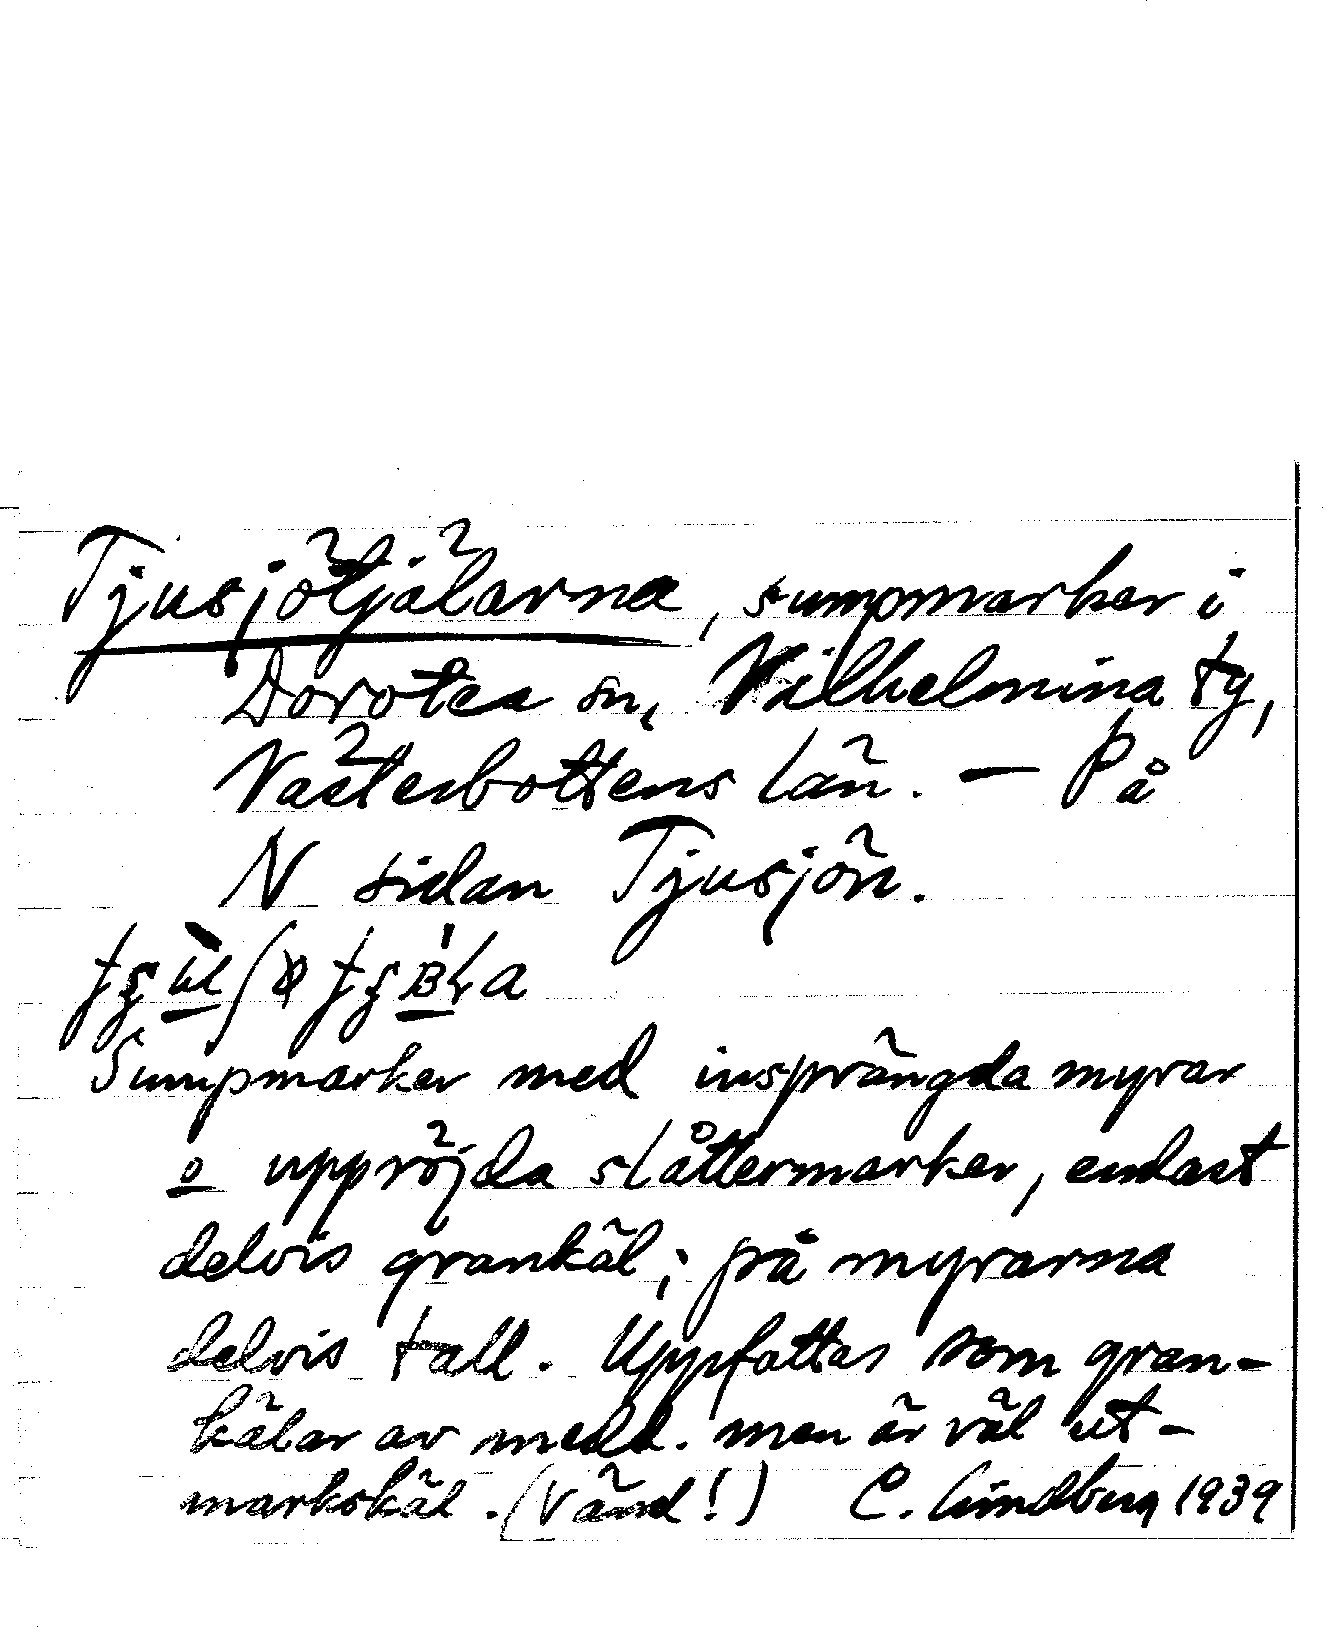 Tjusjötjälarna, sumpmarker i
Dorotea sn, Vilhelmina tg,
Västerbottens län. — På
N sidan Tjusjön.
Sumpmarker med insprängda myrar
o uppröjda slåttermarker, endast
delvis grankäl; på myrarna
delvis tall. Uppfattas som gran-
kälar av medd. men är väl ut-
markskäl. (Vänd!) C. Lindberg 1939